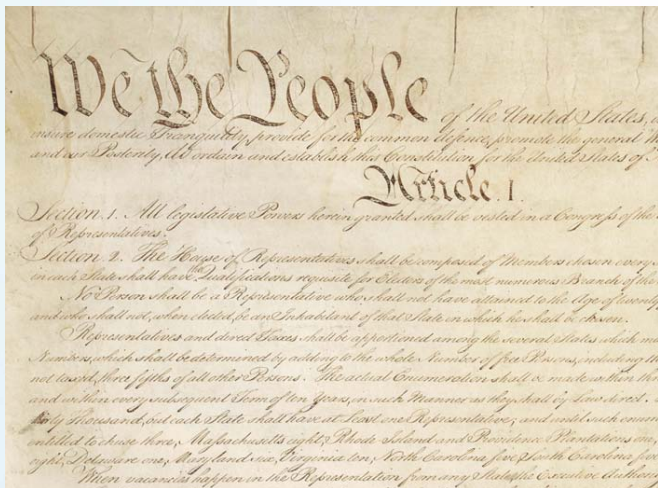 We the People of the United States,
insure domestic Tranquility, provide for the common defence, promote the general
and our Posterity, do ordain and establish this Constitution for the United States of
Article. I.
Section. 1. All legislative Powers herein granted shall be vested in a Congress of the
of Representatives.
Section. 2. The House of Representatives shall be composed of Members chosen every
in each State shall have the Qualifications requisite for Electors of the most numerous Branch of the
No Person shall be a Representative who shall not have attained to the Age of twenty
and who shall not, when elected, be an Inhabitant of that State in which he shall be chosen.
Representatives and direct Taxes shall be apportioned among the several States which
Numbers, which shall be determined by adding to the whole Number of free Persons, including
not taxed, three fifths of all other Persons. The actual Enumeration shall be made within
and within every subsequent Term of ten Years, in such Manner as they shall by Law direct.
thirty Thousand, but each State shall have at Least one Representative; and until such
entitled to chuse three, Massachusetts eight, Rhode Island and Providence Plantations one,
eight, Delaware one, Maryland six, Virginia ten, North Carolina five, South Carolina five,
When vacancies happen in the Representation from any State, the Executive